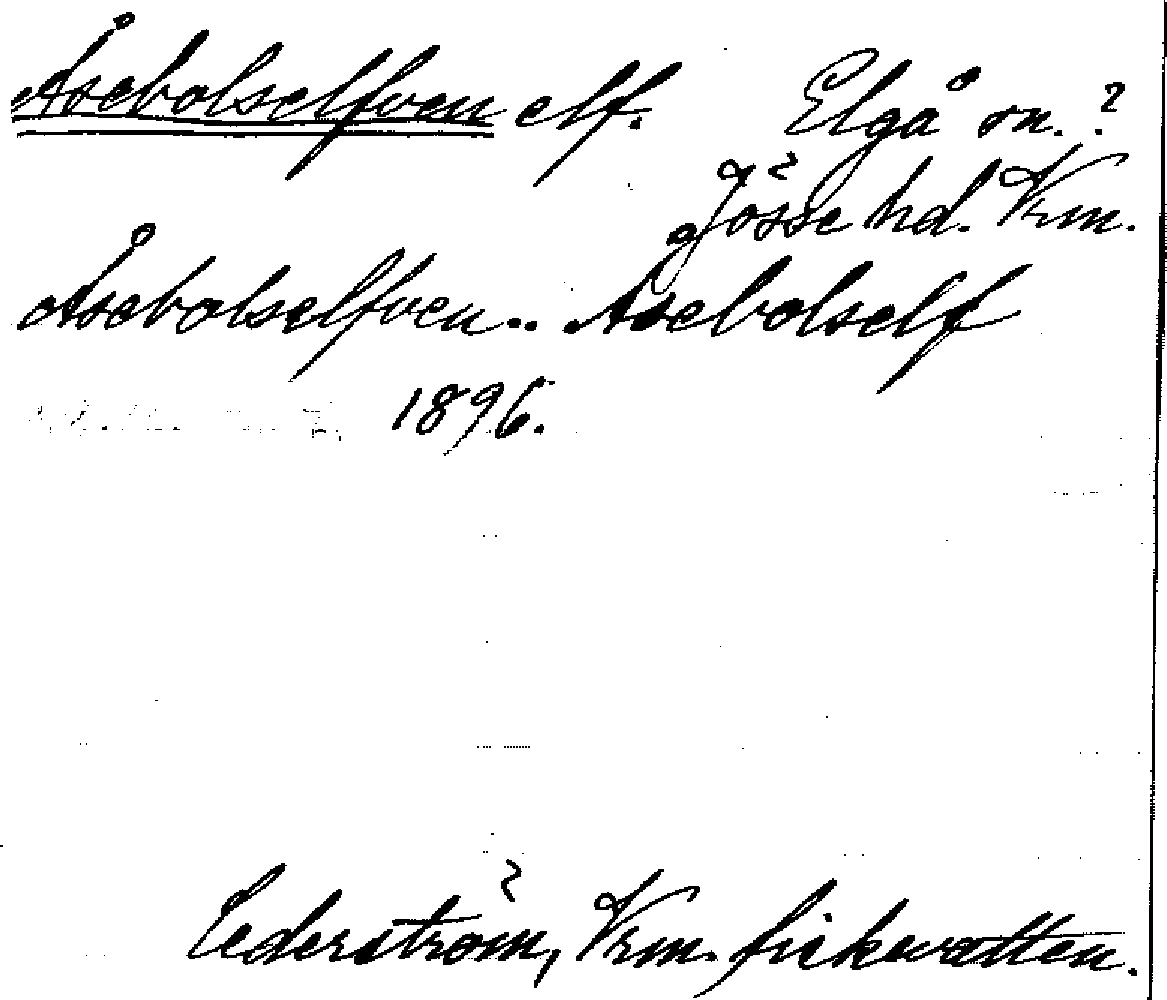 Åsebolselfven elf. Elgå sn.?
Jösse hd. Vrm.
Åsebolselfven.. Åsebolself
1896.
Cederström, Vrm. fiskevatten.